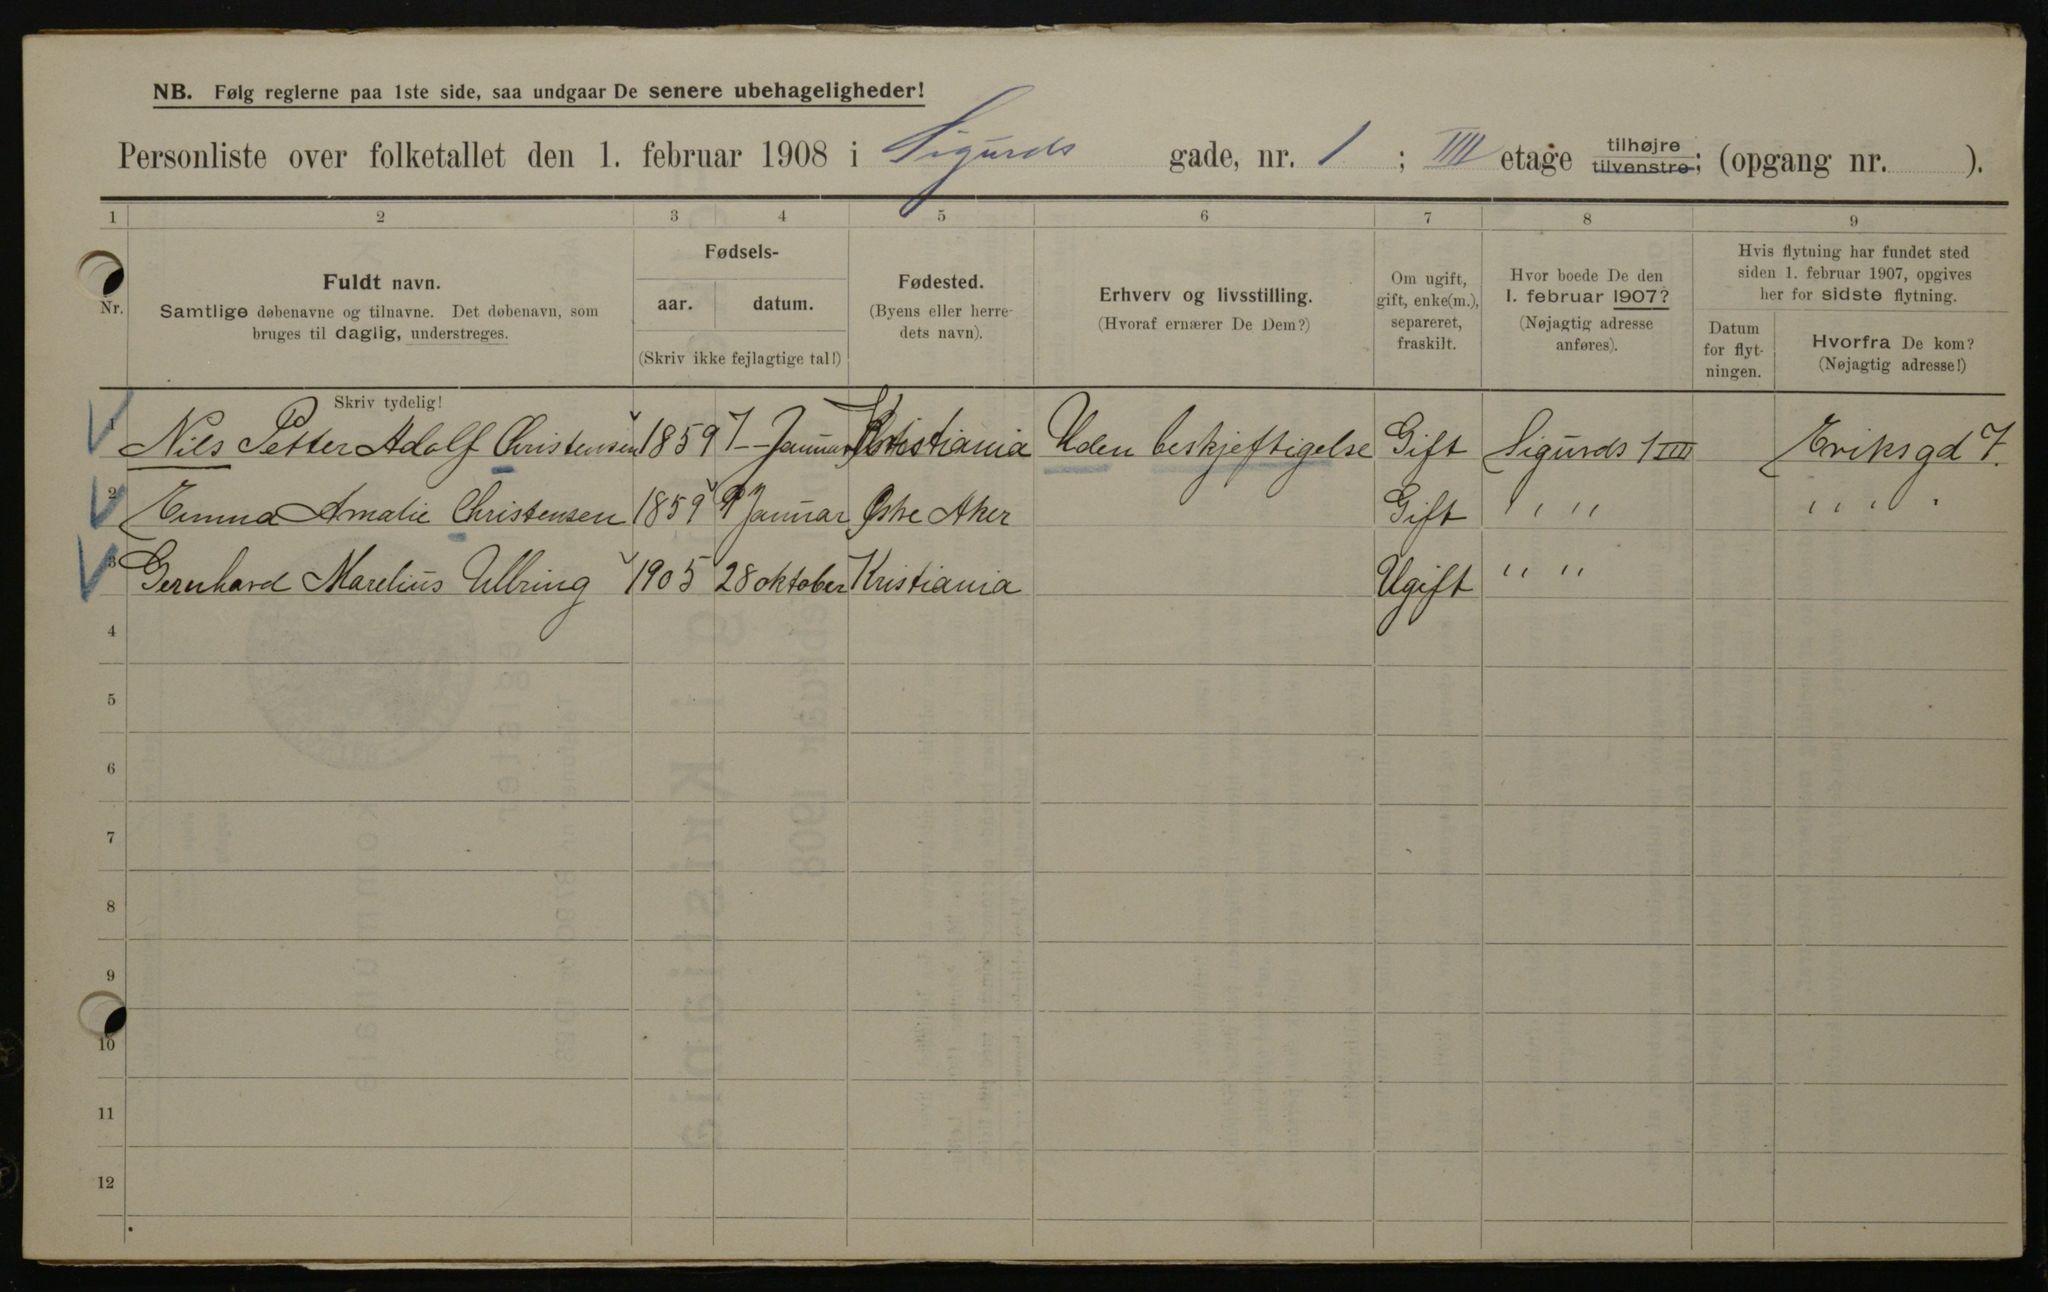 NB. Følg reglerne paa 1ste side, saa undgaar De senere ubehageligheder!
Personliste over folketallet den 1. februar 1908 i Sigurds gade, nr. 1 ; IIII etage tilhøjre tilvenstre; (opgang nr. ).
1 2 3 4 5 6 7 8 9
Nr.
Fuldt navn.
Samtlige døbenavne og tilnavne. Det døbenavn, som
bruges til daglig, understreges.
Fødsels-
aar. datum.
(Skriv ikke fejlagtige tal!)
Fødested.
(Byens eller herre-
dets navn).
Erhverv og livsstilling.
(Hvoraf ernærer De Dem?)
Om ugift,
gift, enke(m.),
separeret,
fraskilt.
Hvor boede De den
1. februar 1907?
(Nøjagtig adresse
anføres).
Hvis flytning har fundet sted
siden 1. februar 1907, opgives
her for sidste flytning.
Datum
for flyt-
ningen.
Hvorfra De kom?
(Nøjagtig adresse!)
Skriv tydelig!
1 Nils Petter Adolf Christensen 1859 7 Januar Kristiania Uden beskjeftigelse Gift Sigurds 1 IIII Eriksgd 7.
2 Emma Amalie Christensen 1859 9 Januar Østre Aker Gift " " " "
3 Gernhard Marelius Ulbring 1905 28 oktober Kristiania Ugift " "
4
5
6
7
8
9
10
11
12